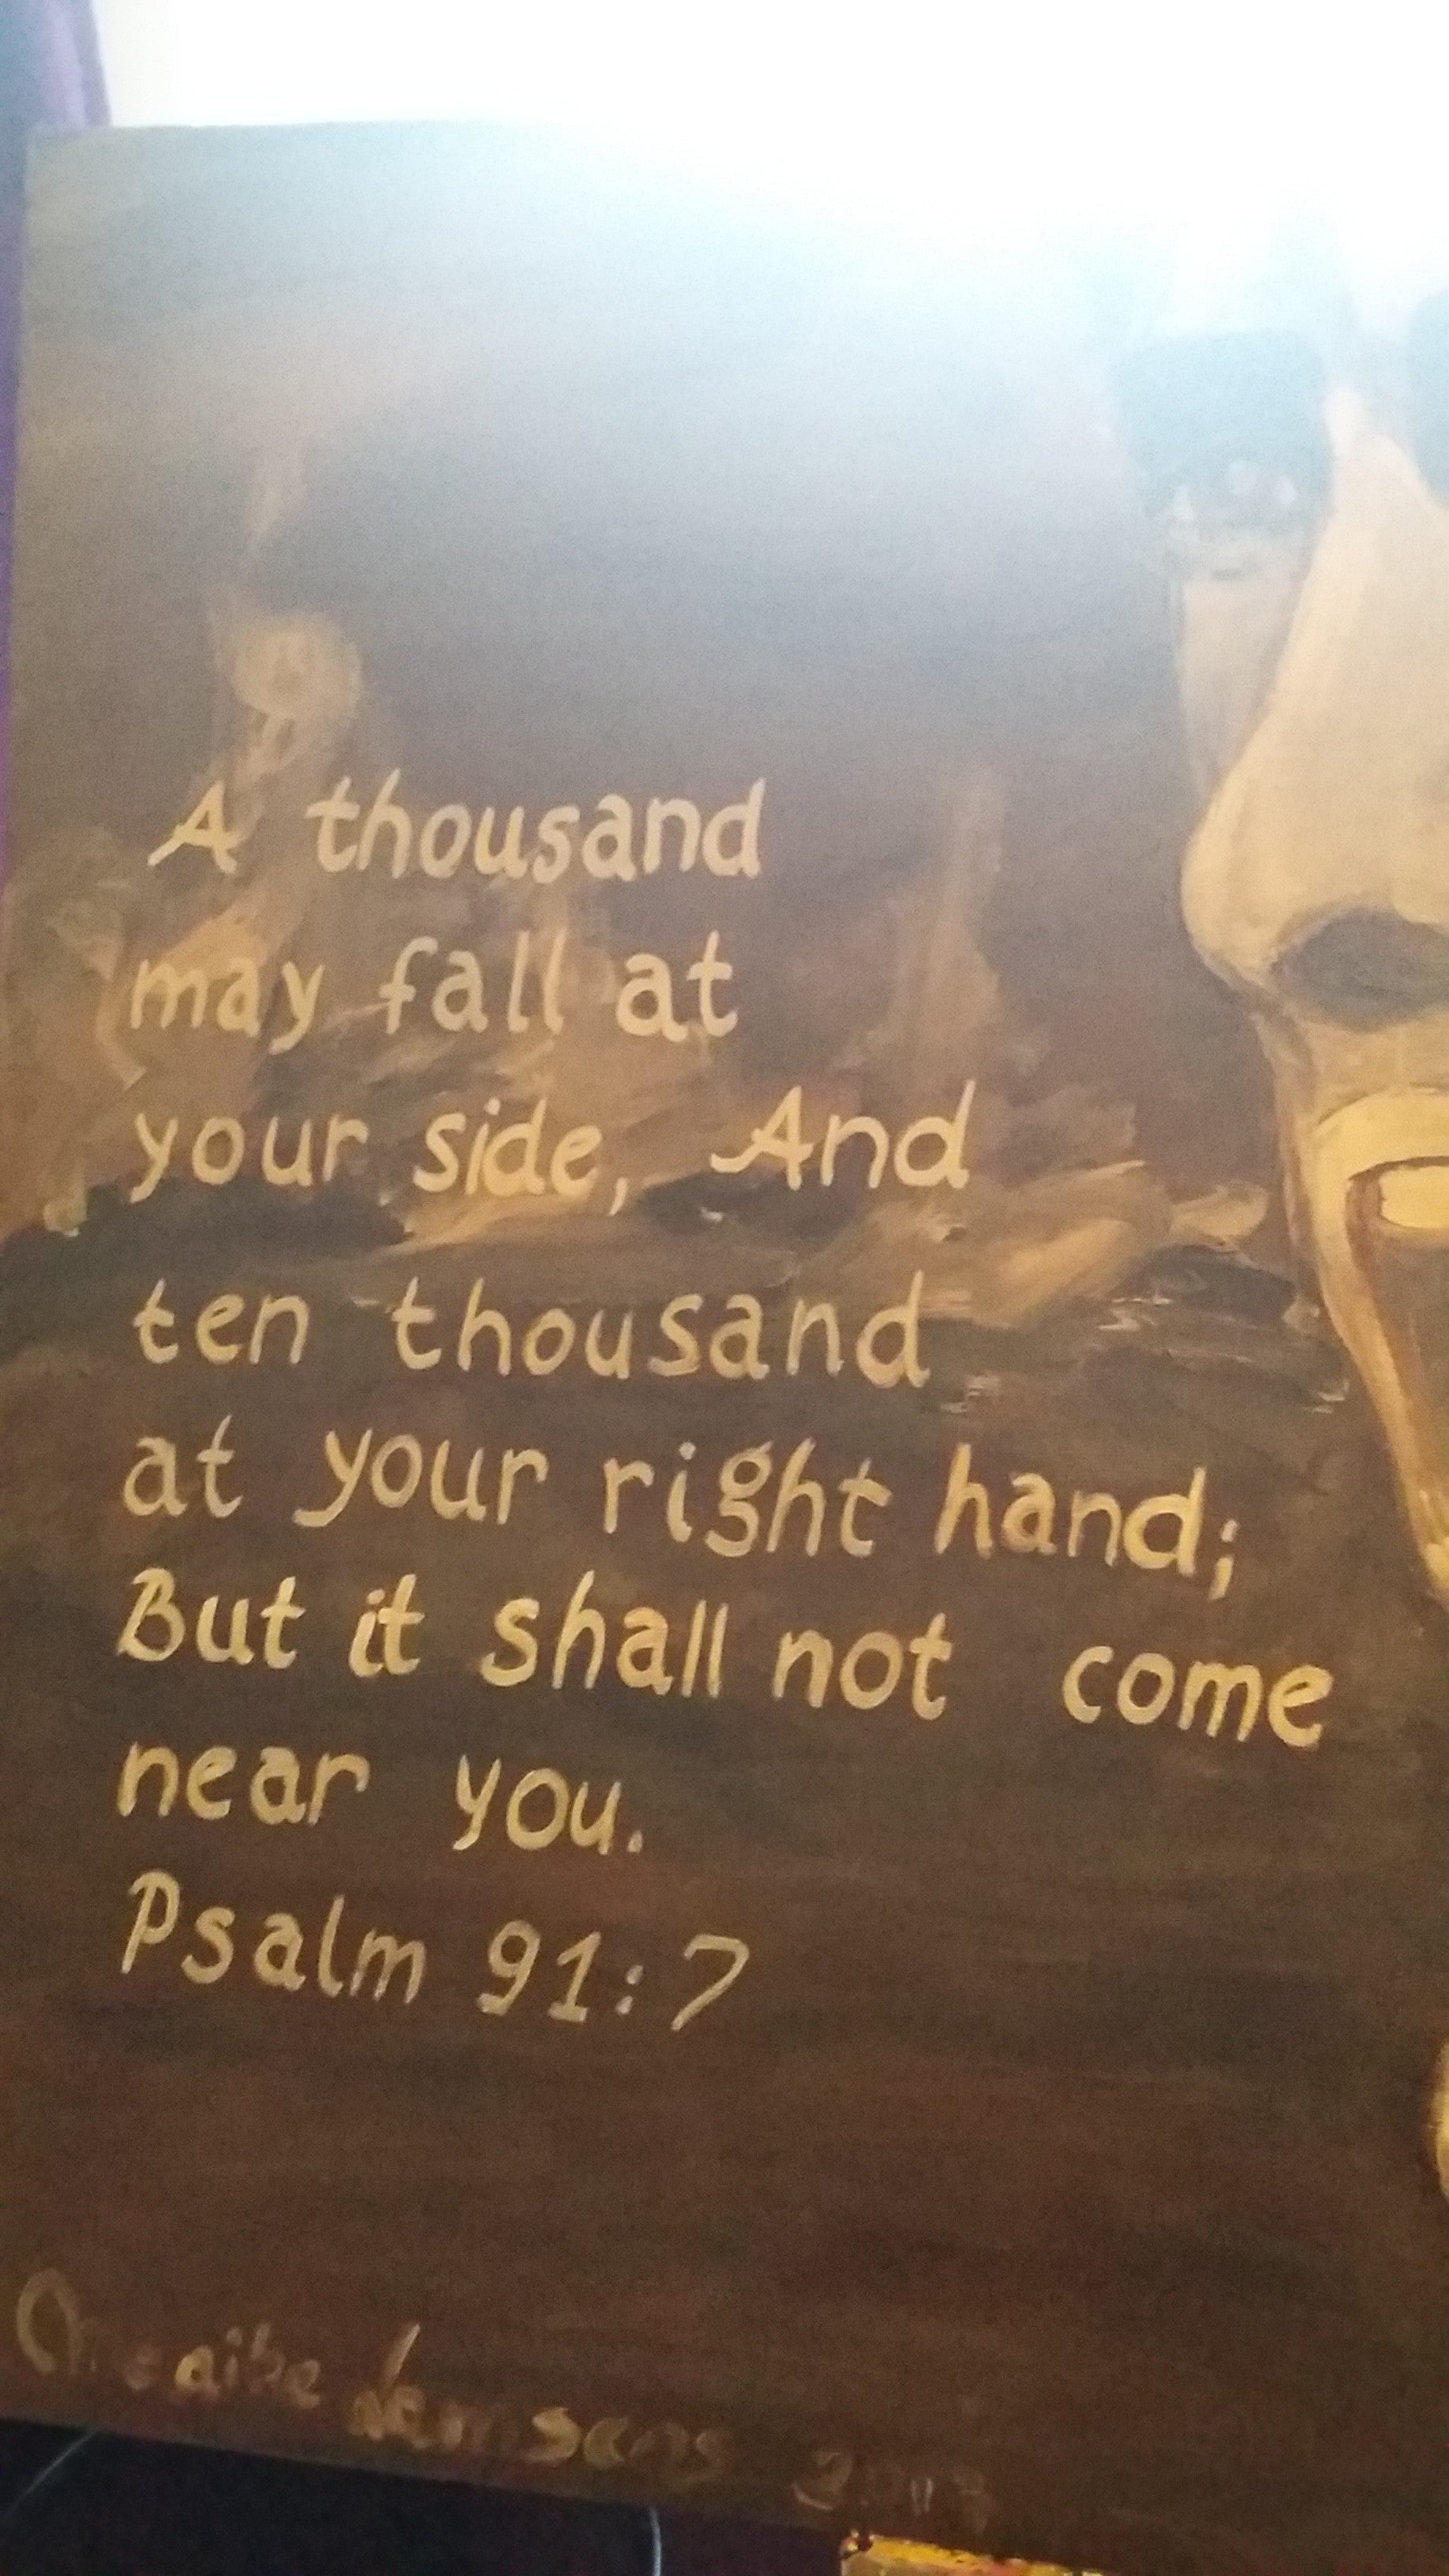 A thousand
may fall at
your side, And
ten thousand
at your right hand;
But it shall not come
near you.
Psalm 91:7